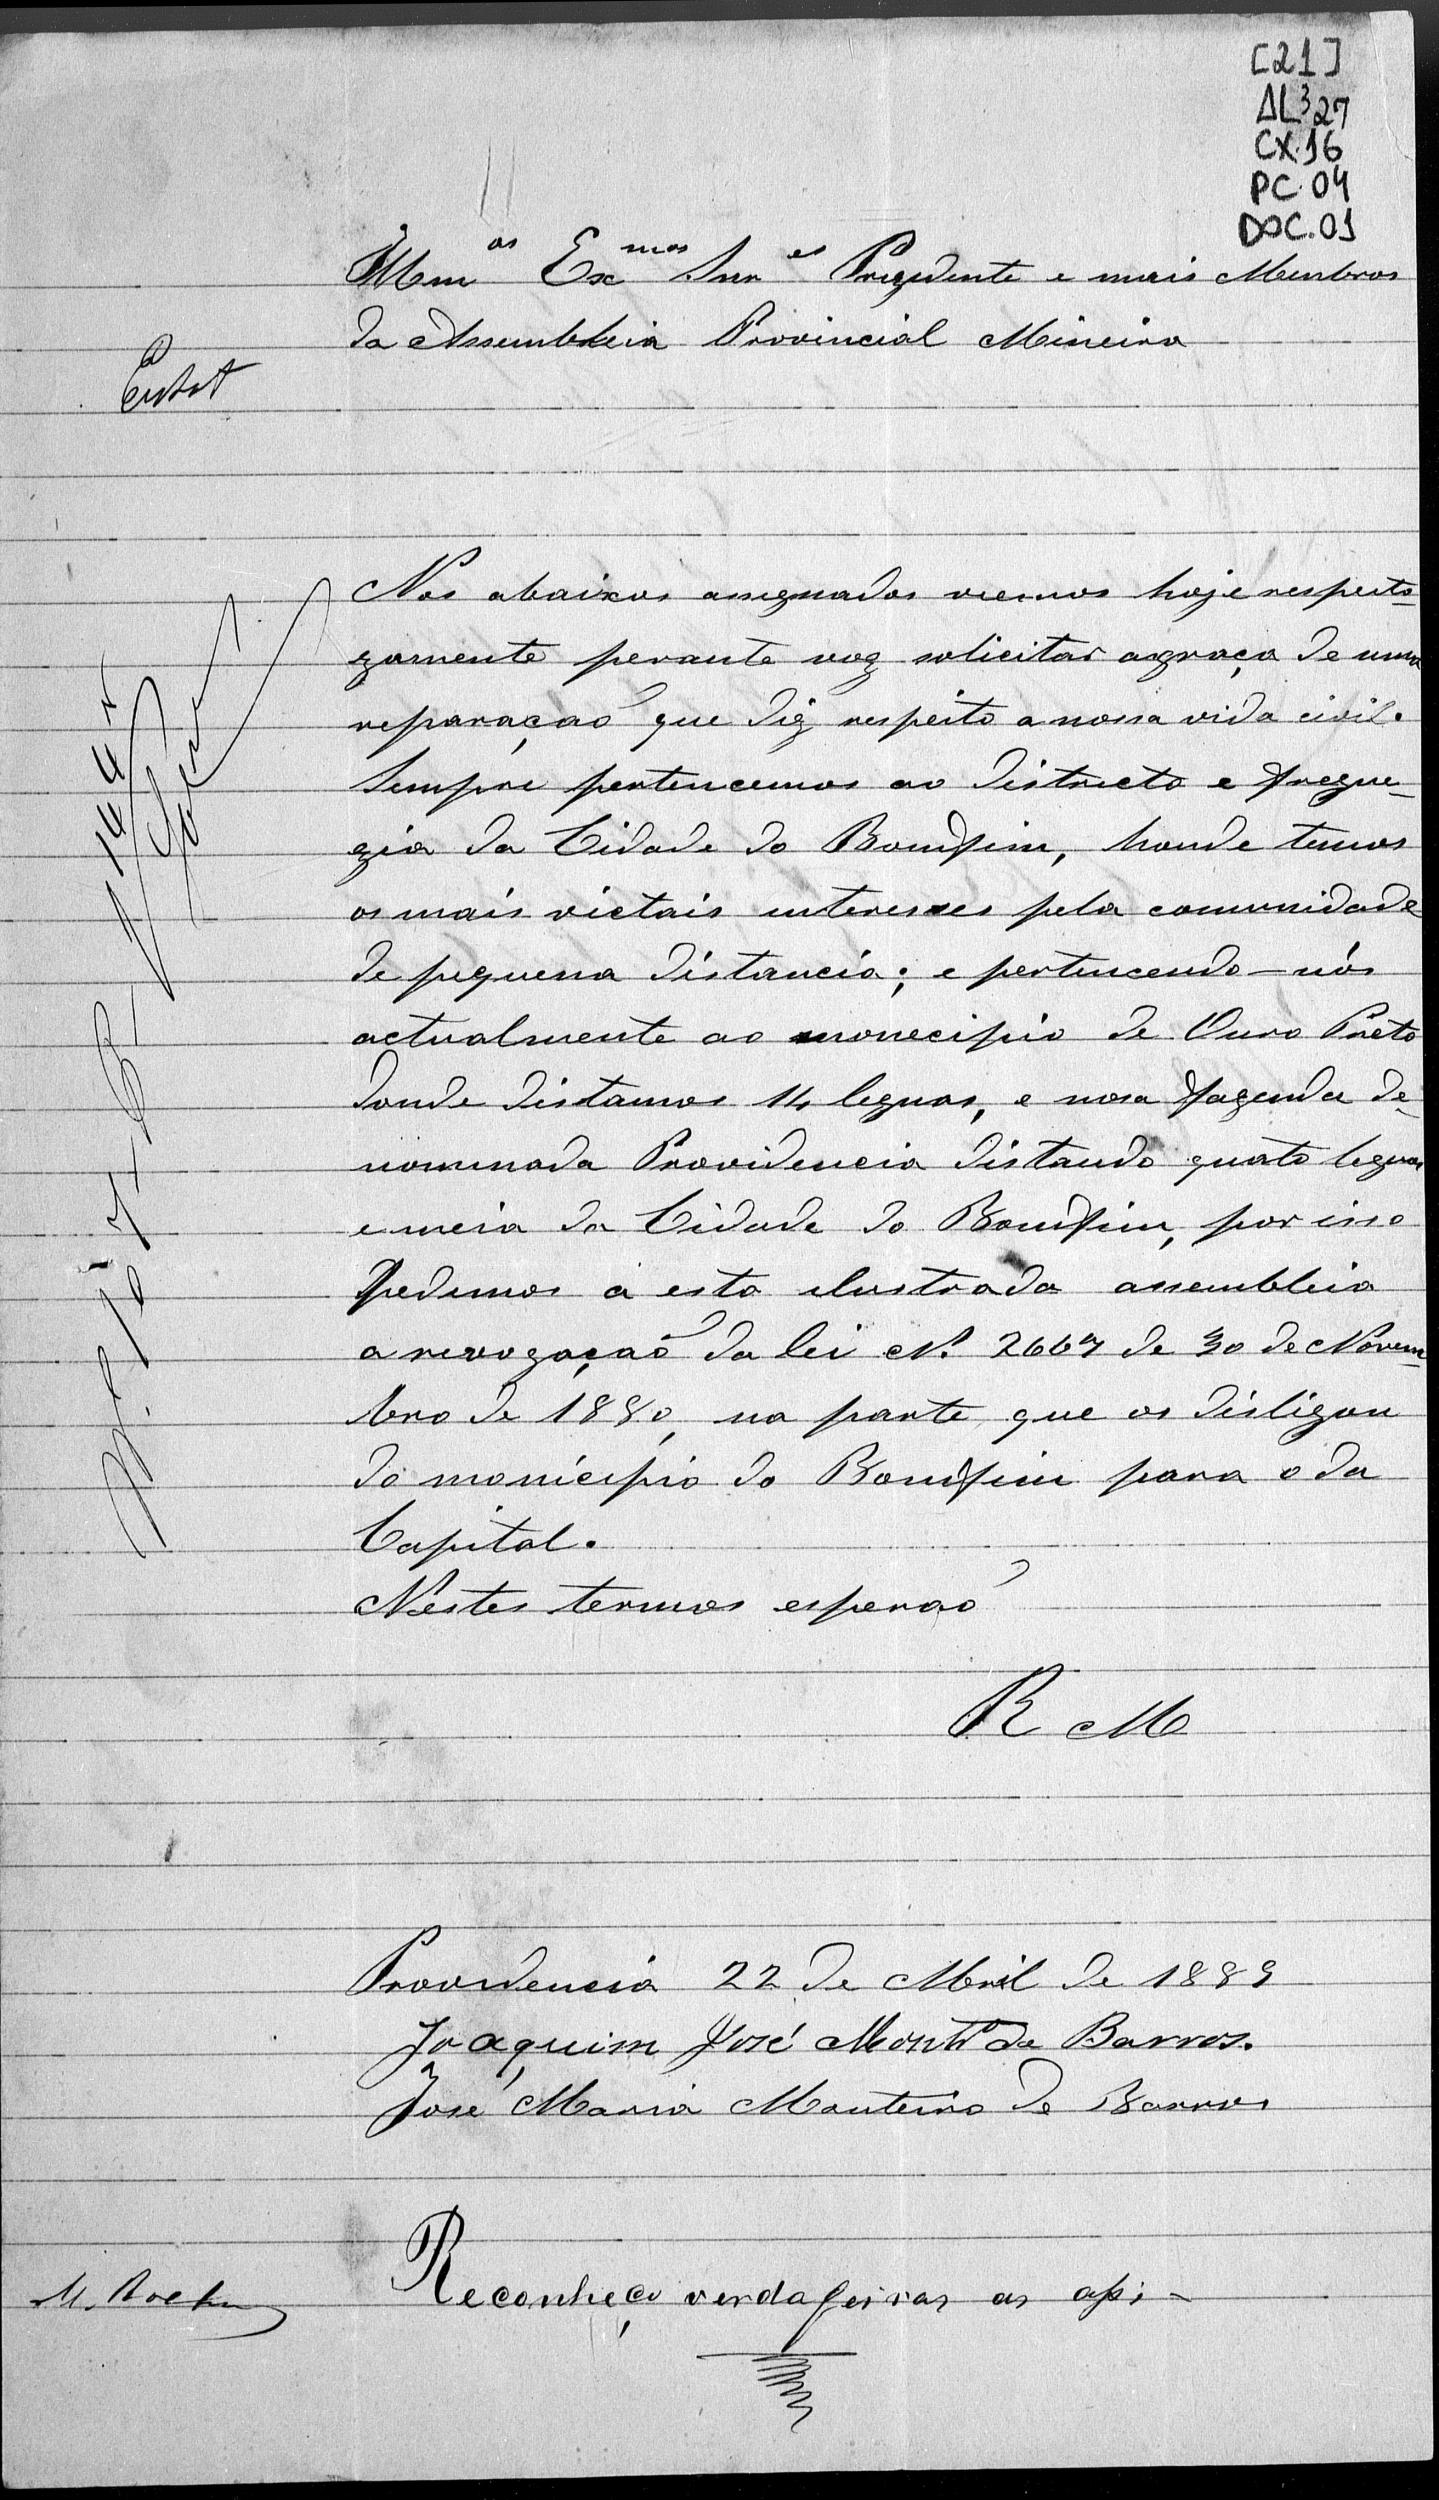 [21]
AL³27
CX.16
PC.04
DOC.01
Illm os Ex mos Snr es Prezidente e mais Membros
da Assembleia Provincial Mineira
Nos abaixos assignados viemos hoje respeito-
zamente perante voz solicitar a graça de uma
reparaçaõ que diz respeito a nossa vida civil.
Sempre pertencemos ao districto e fregue-
zia da Cidade do Bomfim, honde temos
os mais victais interesses pela comonidade
de pequena distancia; e pertencendo-nós
actualmente ao monecipio de Ouro Preto
donde distamos 14 leguas, e nosa fazenda de-
nominada Providencia distando quato leguas
e meia da Cidade do Bomfim, por isso
pedimos a esta ilustrada assembleia
a revogaçaõ da lei Nº 2667 de 30 de Novem-
bro de 1880, na parte que os disligou
do monicipio do Bomfim para o da
Capital.
Nestes termos esperaõ
R M
Providencia 22 de Abril de 1889
Joaquim José Montrº de Barros.
José Maria Monteiro de Barros
Reconheço verdadeiras as assi-